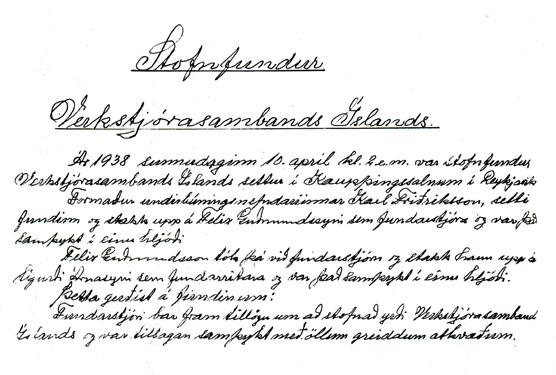 Stofnfundur
Verkstjórasambands Íslands.
Ár 1938 sunnudaginn 10. apríl kl. 2 e.m. var stofnfundur
Verkstjórasambands Íslands settur í Kaupþingssalnum í Reykjavík
Formaður undirbúningsnefndarinnar Karl Friðriksson, setti
fundinn og stakk upp á Felix Guðmundssyni sem fundarstjóra og var það
samþykt í einu hljóði
Felix Guðmundsson tók þá við fundarstjórn og stakk hann upp á
Jónssyni sem fundarritara og var það samþykt í einu hljóði.
Þetta gerðist á fundinum:
Fundarstjóri bar fram tillögu um að stofnað yrði Verkstjórasamband
Íslands og var tillagan samþykt með öllum greiddum atkvæðum.